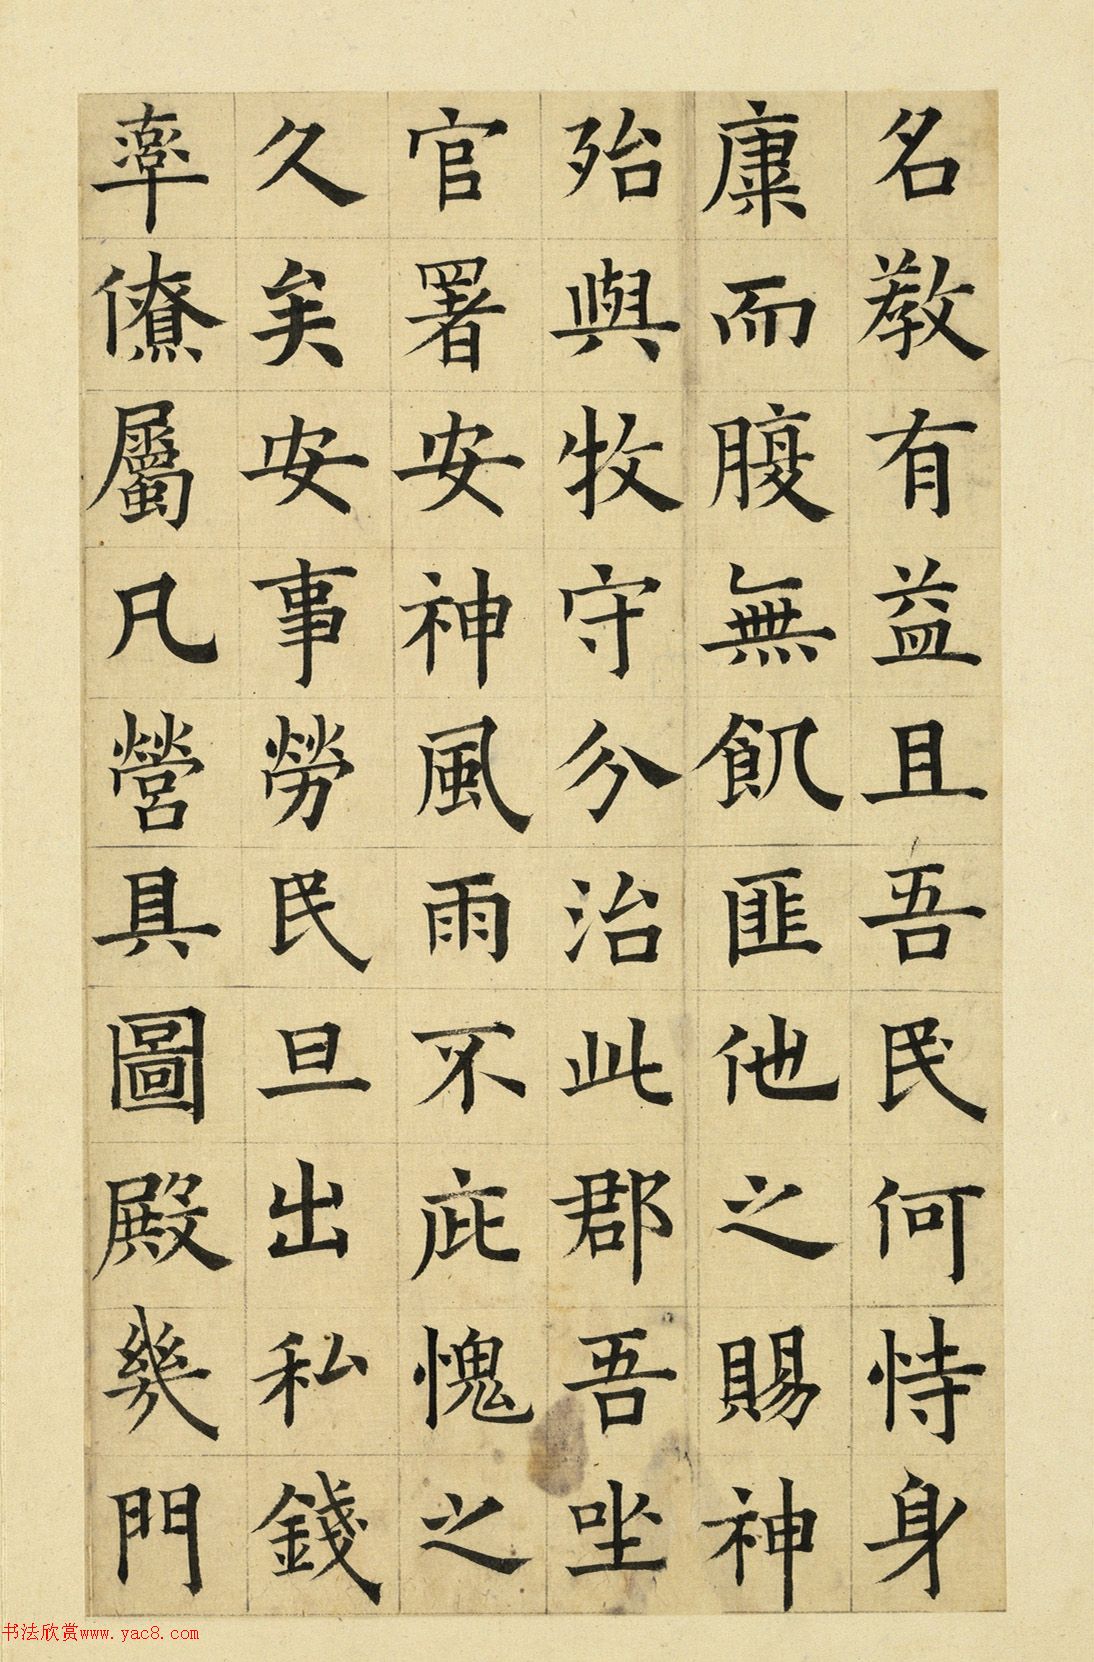 名教有益且吾民何恃身
康而腹無飢匪他之賜神
殆與牧守分治此郡吾坐
官署安神風雨不庇愧之
久矣安事勞民旦出私錢
率僚屬凡營具圖殿幾門
书法欣赏www.yac8.com